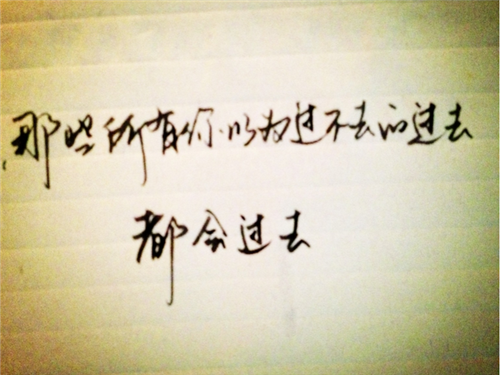 那些所有你以为过不去的过去
都会过去